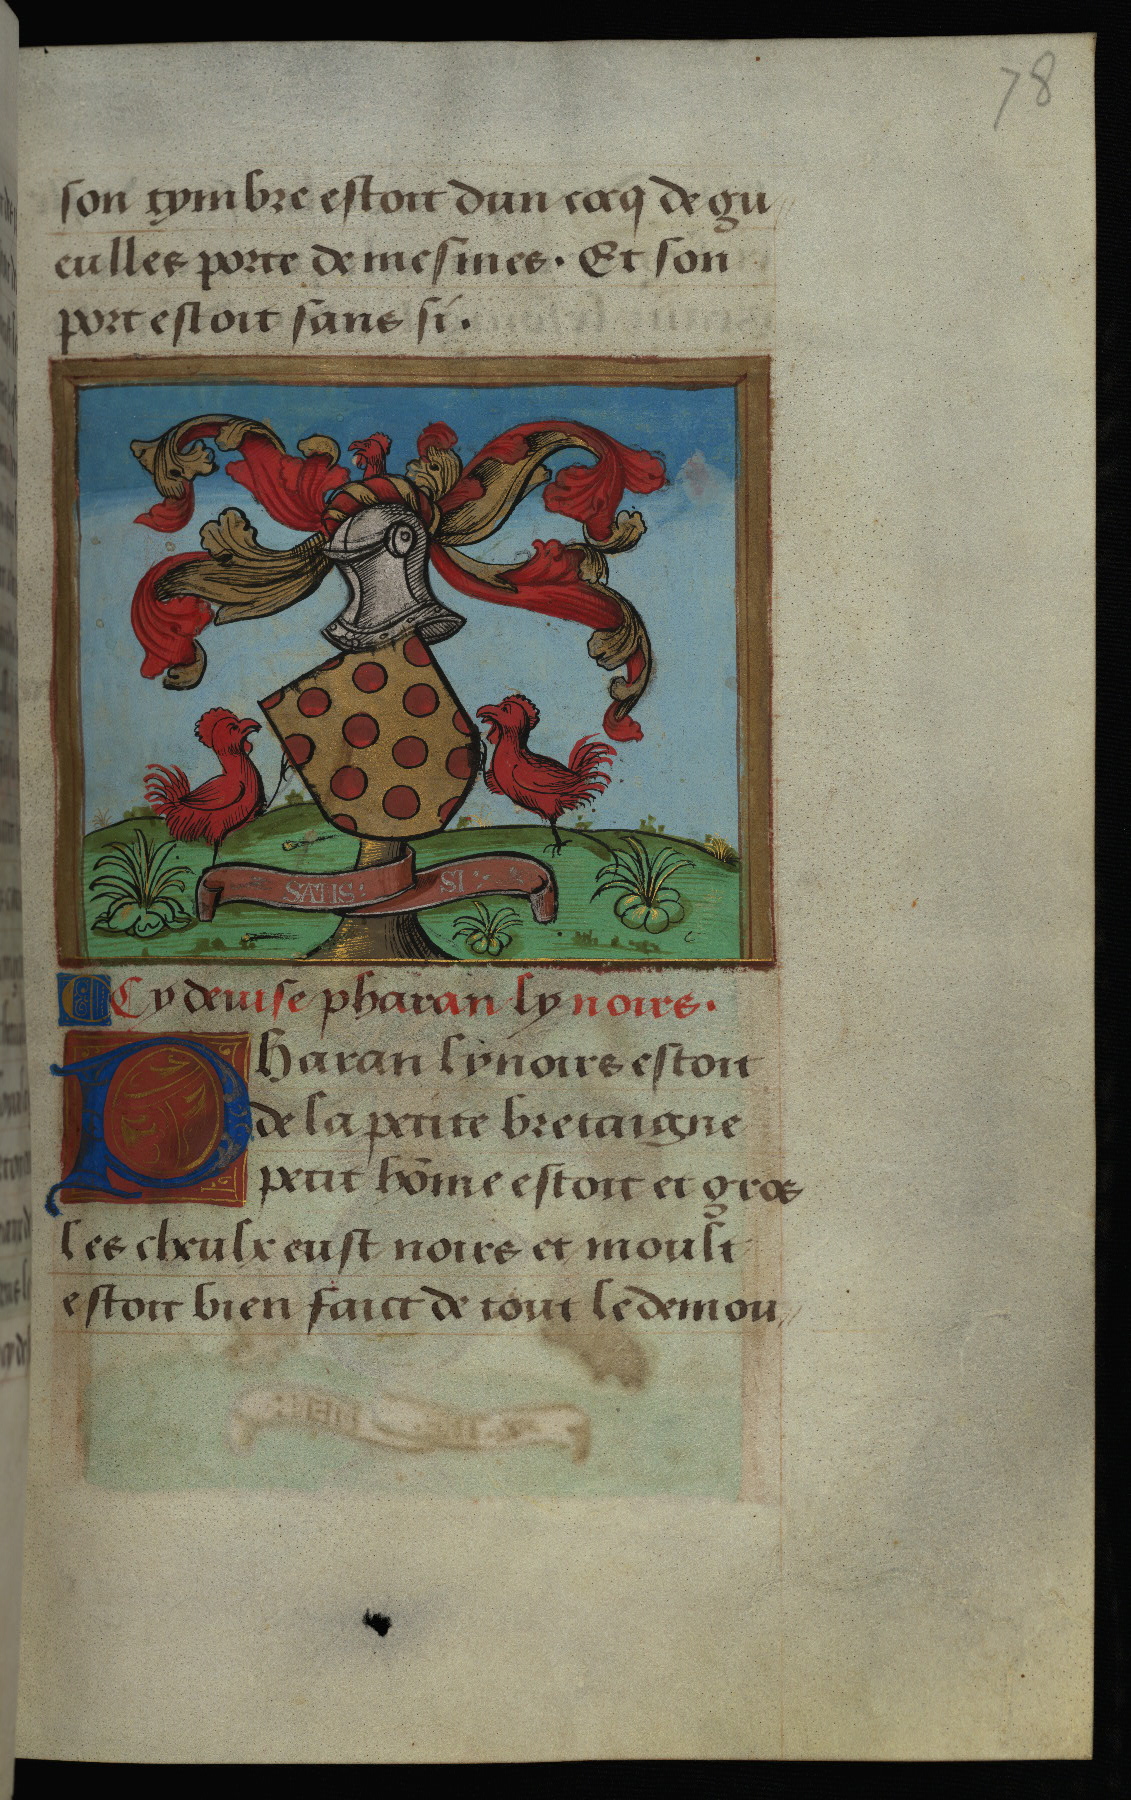 78
son tymbre estoit dun cocq de gu
eulles porte de mesmes. Et son
port estoit sans si.
SANS: SI:
Cy deuise pharan ly noirs.
Pharan ly noirs estoit
de la petite bretaigne
petit hōme estoit et gros
les cheulx eust noirs et moult
estoit bien faict de tout le demou